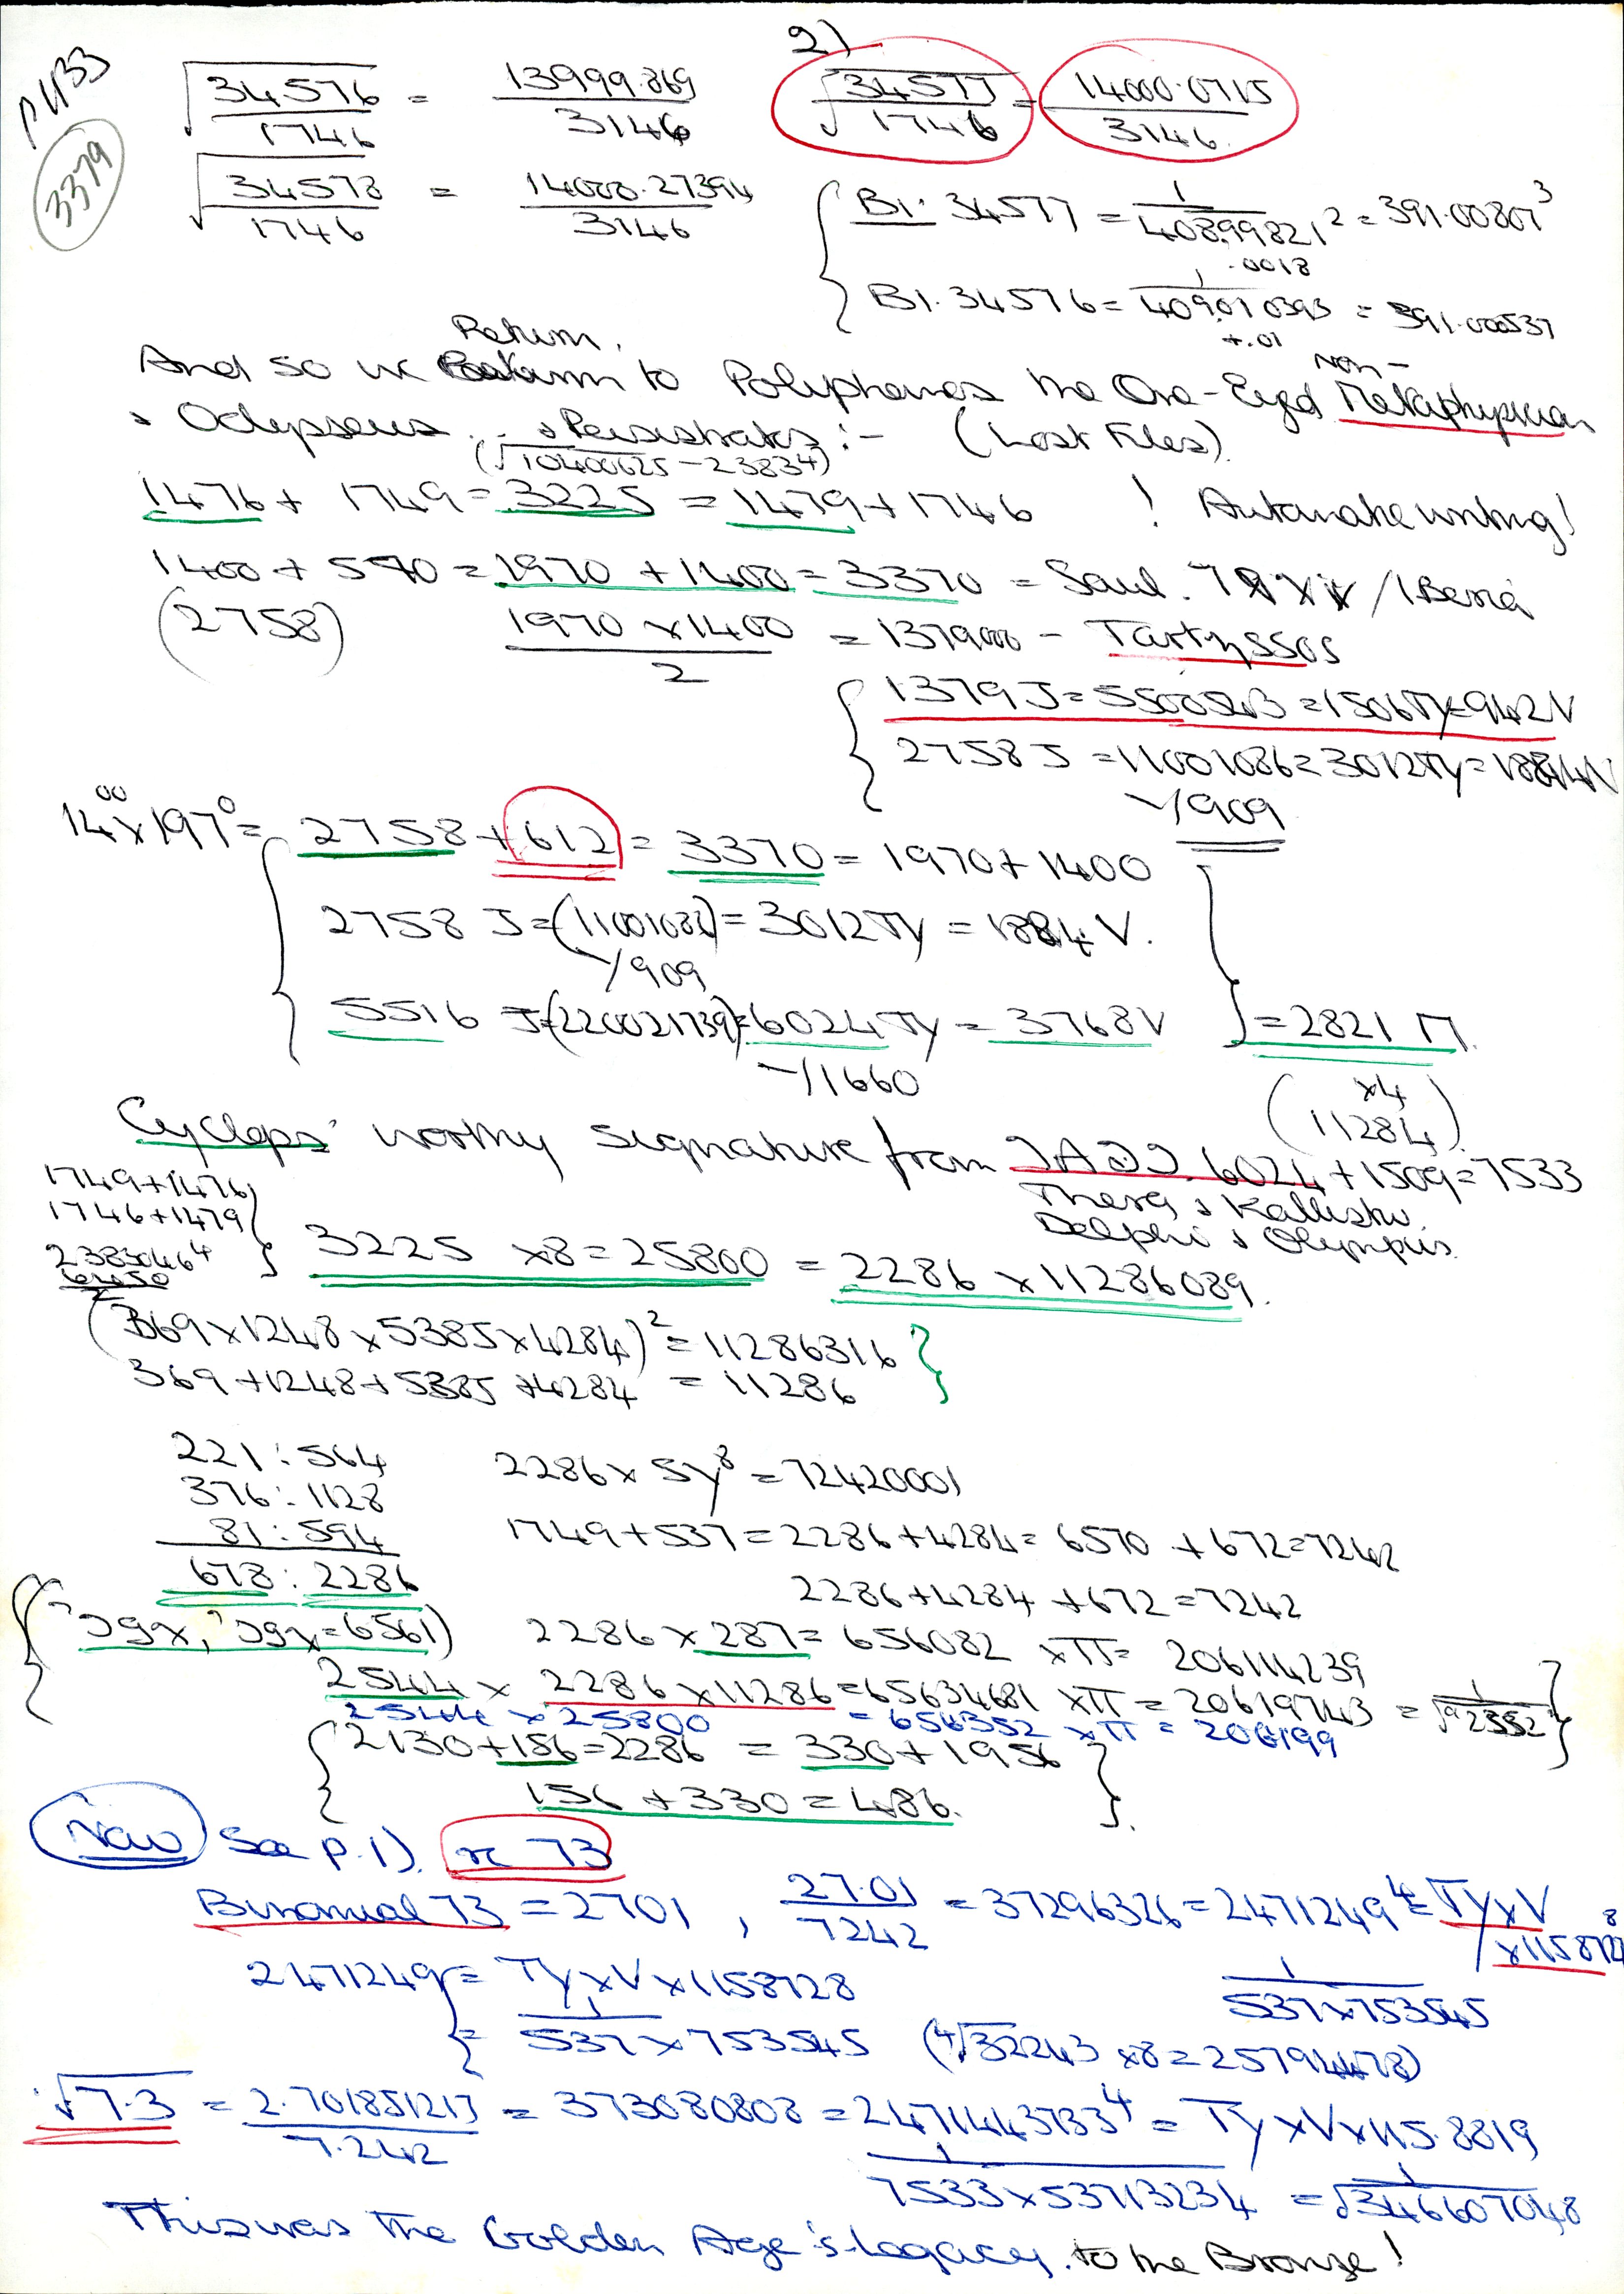 2)
p4133
3379
√34576/1746 = 13999.869/3146
√34577/1746 = 14000.0715/3146
√34578/1746 = 14000.27394/3146
B1. 34577 = 1/40899821² = 391.00807³
.0018
B1. 34576 = 1/409010393 = 391.000537
+.01
Return.
And so we to Polyphemos the One-Eyed Non-Metaphysician
& Odysseus & Peisistratos :- (Lost Files).
(√10400625 - 23834)
1476 + 1749 = 3225 = 1479 + 1746 ! Automatic writing!
1400 + 570 = 1970 + 1400 = 3370 = Saul. /Iberia
(2758) 1970 x 1400/2 = 1379000 - Tartyssos
1379 J = = 1506 Ty = 942 V
2758 J = 11001086 = 3012 Ty = 1884 V
-/909
14⁰⁰ x 197⁰ = 2758 + 612 = 3370 = 1970 + 1400
2758 J = = 3012 Ty = 1884 V.
-/909
5516 J = (220021739) = 6024 Ty = 3768 V = 2821 Π.
-/1660
(x4 11284)
Cyclops' worthy signature from 6024 + 1509 = 7533
Thera & Kallisto.
Delphi & Olympus.
1749 + 1476
1746 + 1479
2383046⁴
6450/2
3225 x 8 = 25800 = 2286 x 11286089.
(369 x 1248 x 5385 x 4284)² = 11286316
369 + 1248 + 5385 + 4284 = 11286
221 : 564
376 : 1128
81 : 594
678 : 2286
2286 x Sy⁸ = 72420001
1749 + 537 = 2286 + 4284 = 6570 + 672 = 7242
2286 + 4284 + 672 = 7242
2286 x 287 = 656082 x π = 206114239
2544 x 2286 x 11286 = 65634681 x π = 20619743
2544 x 25800 = 656352 x π = 206199
2130 + 156 = 2286 = 330 + 1956
156 + 330 = 486.
Now See p. 1). re 73
Binomial 73 = 2701, 27.01/7242 = 37296326 = 2471249⁴ = Ty x V x 1158728
2471249 = Ty x V x 1158728
= 1/537 x 753545 (⁴√32243 x 8 = 25794478)
1/537 x 753545
√7.3 = 2.701851217/7.242 = 373080808 = 2471443733⁴ = Ty x V x 115.8819
1/7533 x 53713234 = 1/√346607048
This was The Golden Age's Legacy. to the Bronze!